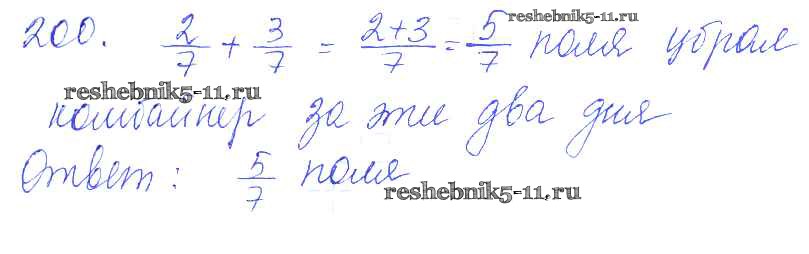 reshebnik5-11.ru
200. 2/7 + 3/7 = 2+3/7 = 5/7 поля убрал
reshebnik5-11.ru
комбайнер за эти два дня
Ответ: 5/7 поля
reshebnik5-11.ru